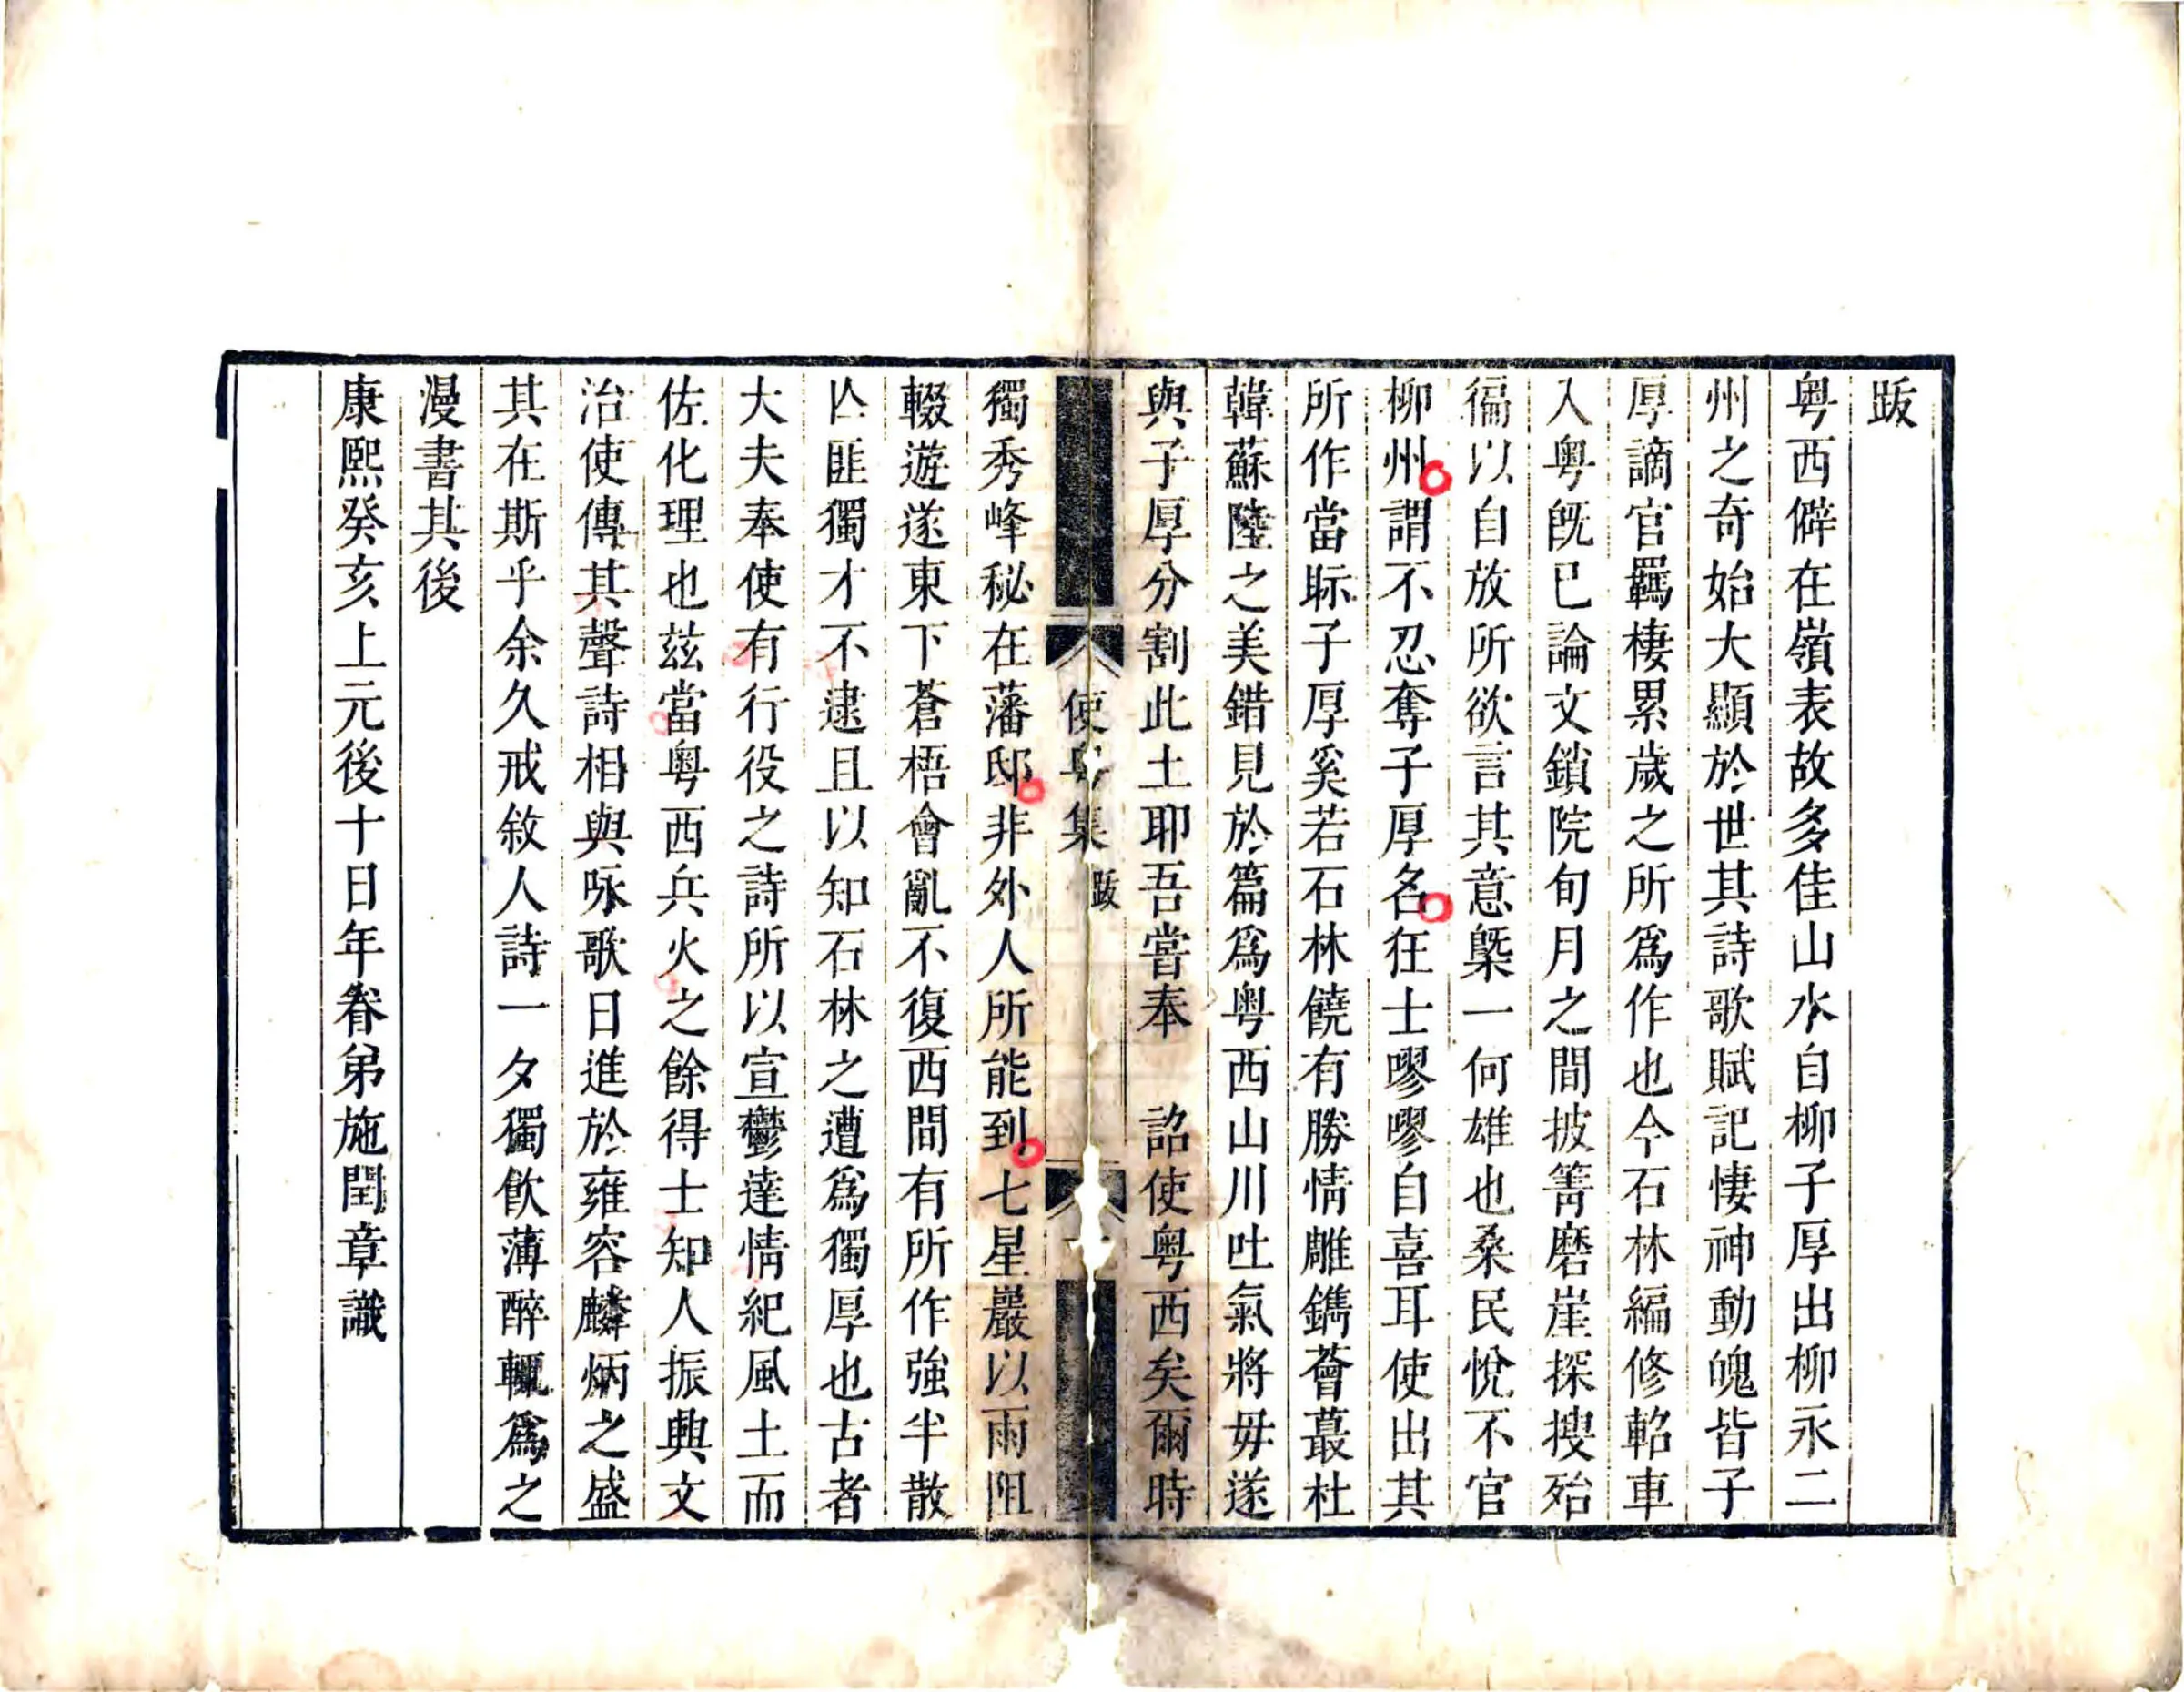 跋
粤西僻在嶺表故多佳山水自柳子厚出柳永二
州之奇始大顯於世其詩歌賦記悽神動魄皆子
厚謫官羈棲累歲之所爲作也今石林編修軺車
入粤旣已論文鎖院旬月之間披箐磨崖探搜殆
徧以自放所欲言其意槩一何雄也桑民悅不官
柳州謂不忍奪子厚名狂士嘐嘐自喜耳使出其
所作當眎子厚奚若石林饒有勝情雕鐫薈蕞杜
韓蘇陸之美錯見於篇爲粤西山川吐氣將毋遂
與子厚分割此土耶吾嘗奉　詔使粤西矣爾時
使粤集　跋
獨秀峰秘在藩邸非外人所能到七星巖以雨阻
輟遊遂東下蒼梧會亂不復西間有所作強半散
亾匪獨才不逮且以知石林之遭爲獨厚也古者
大夫奉使有行役之詩所以宣鬱達情紀風土而
佐化理也茲當粤西兵火之餘得士知人振興文
治使傳其聲詩相與咏歌日進於雍容麟炳之盛
其在斯乎余久戒敘人詩一夕獨飲薄醉輒爲之
漫書其後
康熙癸亥上元後十日年眷弟施閏章識